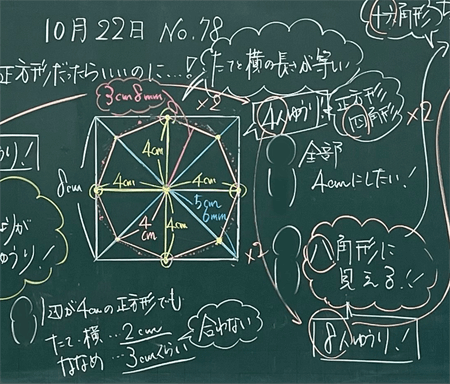 10月22日 No.78
正方形だったらいいのに…!
たてと横の長さが等しい
十六角形
3cm8mm
×8
4人ゆうり!
正方形
四角形
×2
ゆうり!
全部
4cmにしたい!
8cm
4cm
4cm
4cm
5cm
6mm
4cm
4cm
×2
八角形に
見える!!
8人ゆうり!
1辺が4cmの正方形でも
たて・横…2cm
ななめ…3cmくらい
合わない